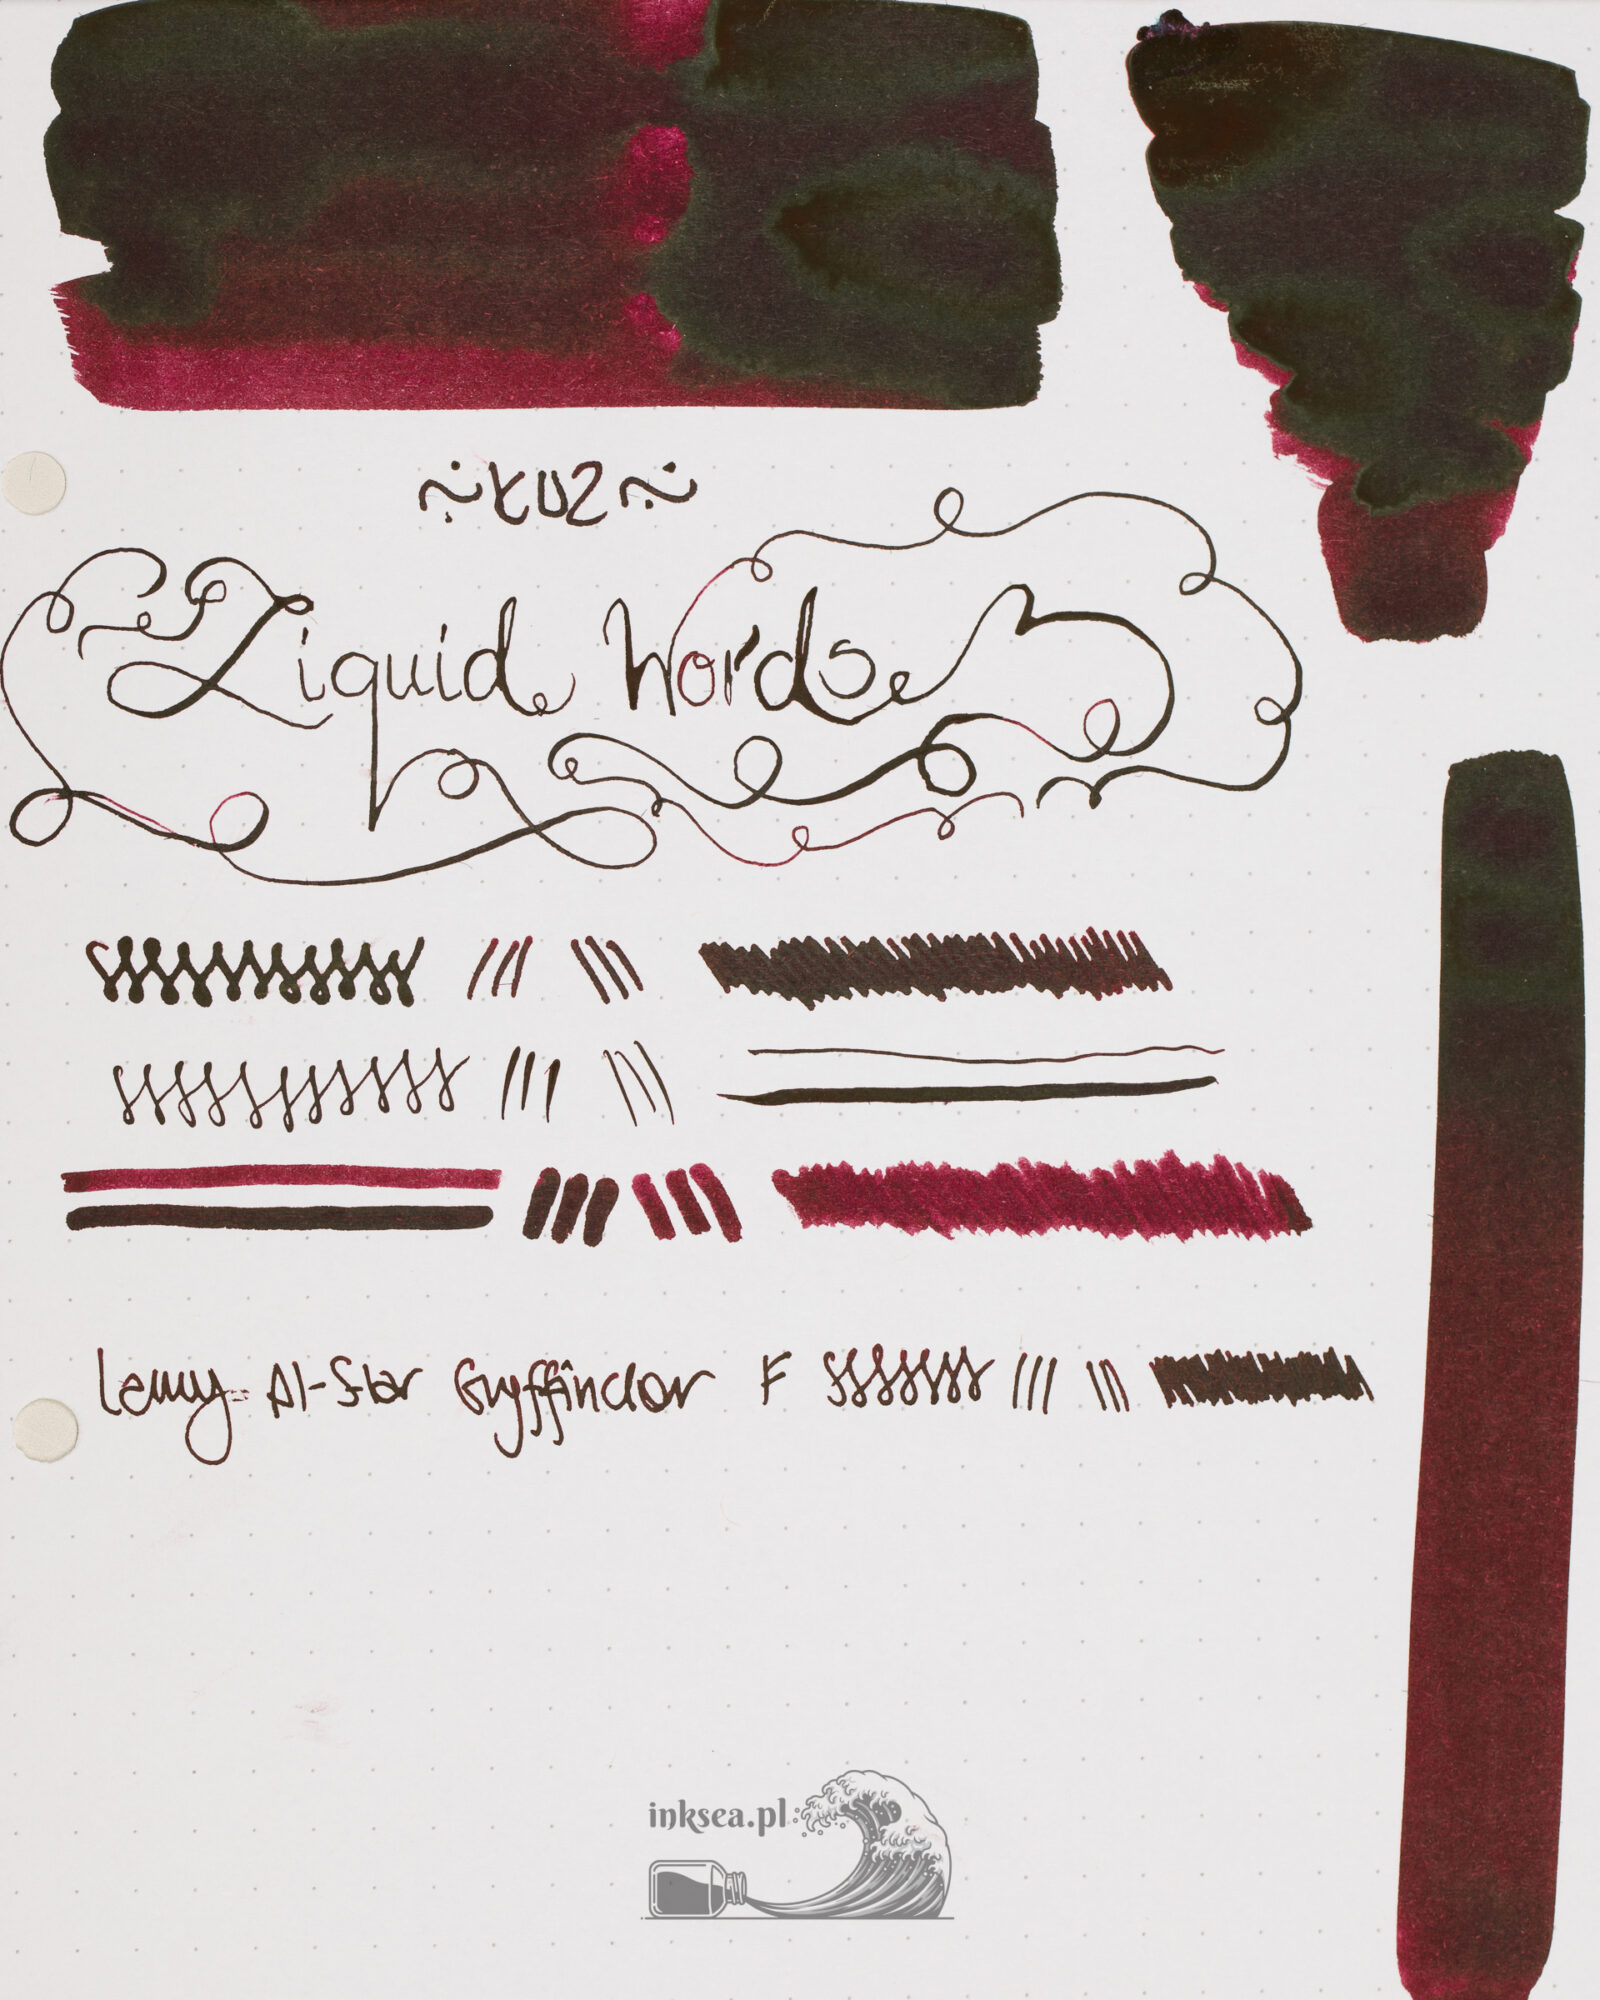 ~KUZ~
Liquid Words
Lamy Al-Star Gryffindor F
inksea.pl